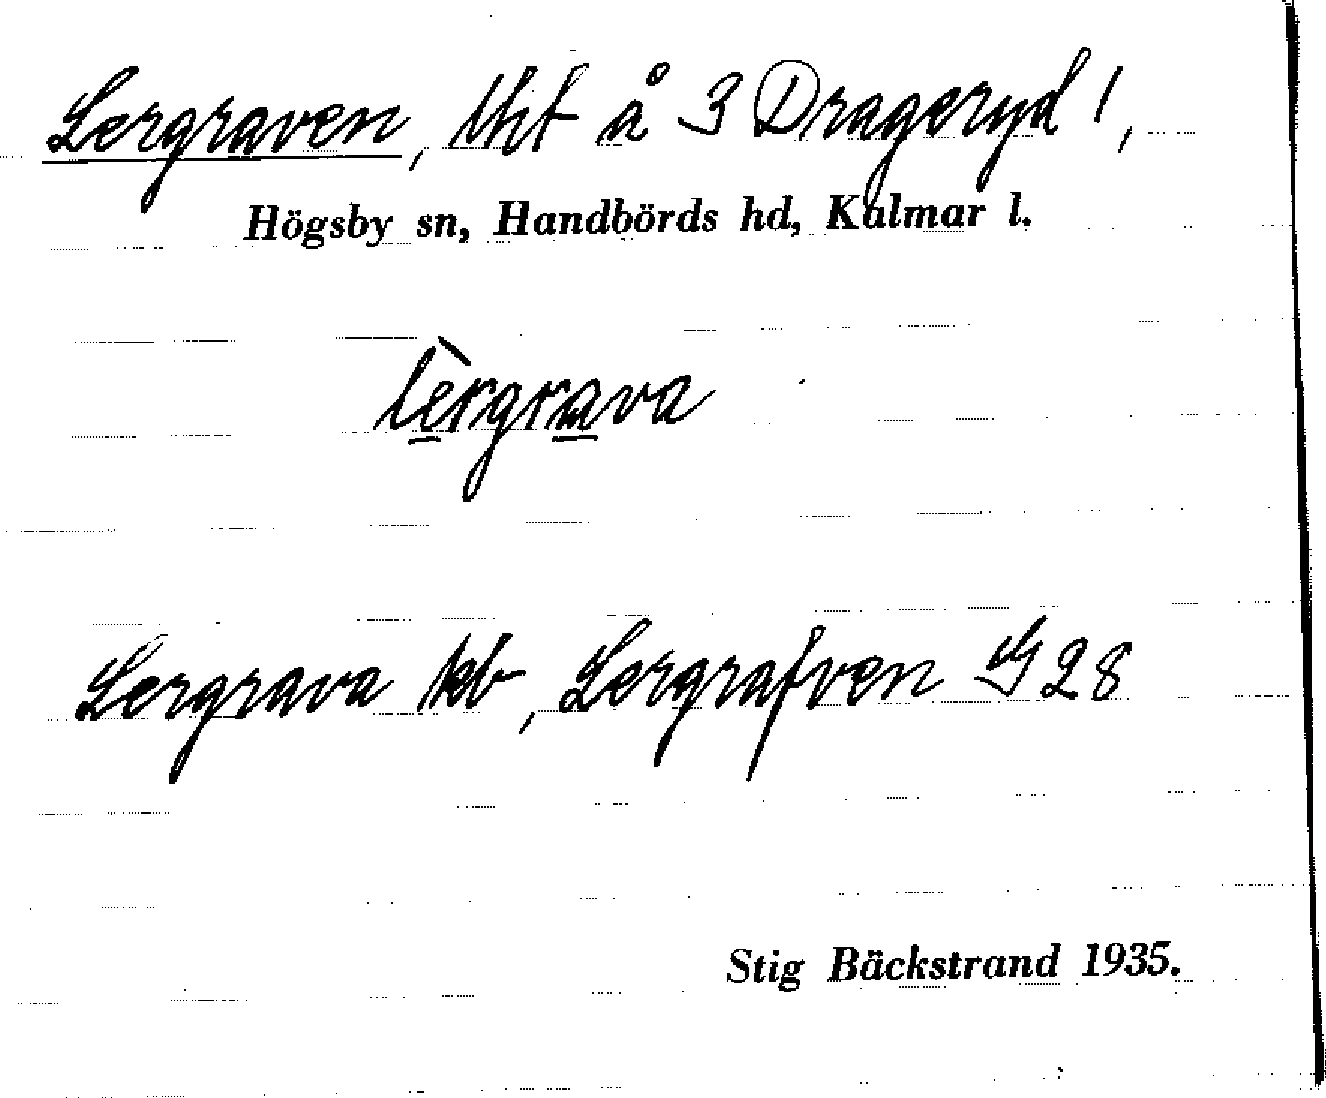 Lergraven, lht å 3 Drageryd !,
Högsby sn, Handbörds hd, Kalmar l.
lèrgrava
Lergrava kb, Lergrafven G 28
Stig Bäckstrand 1935.